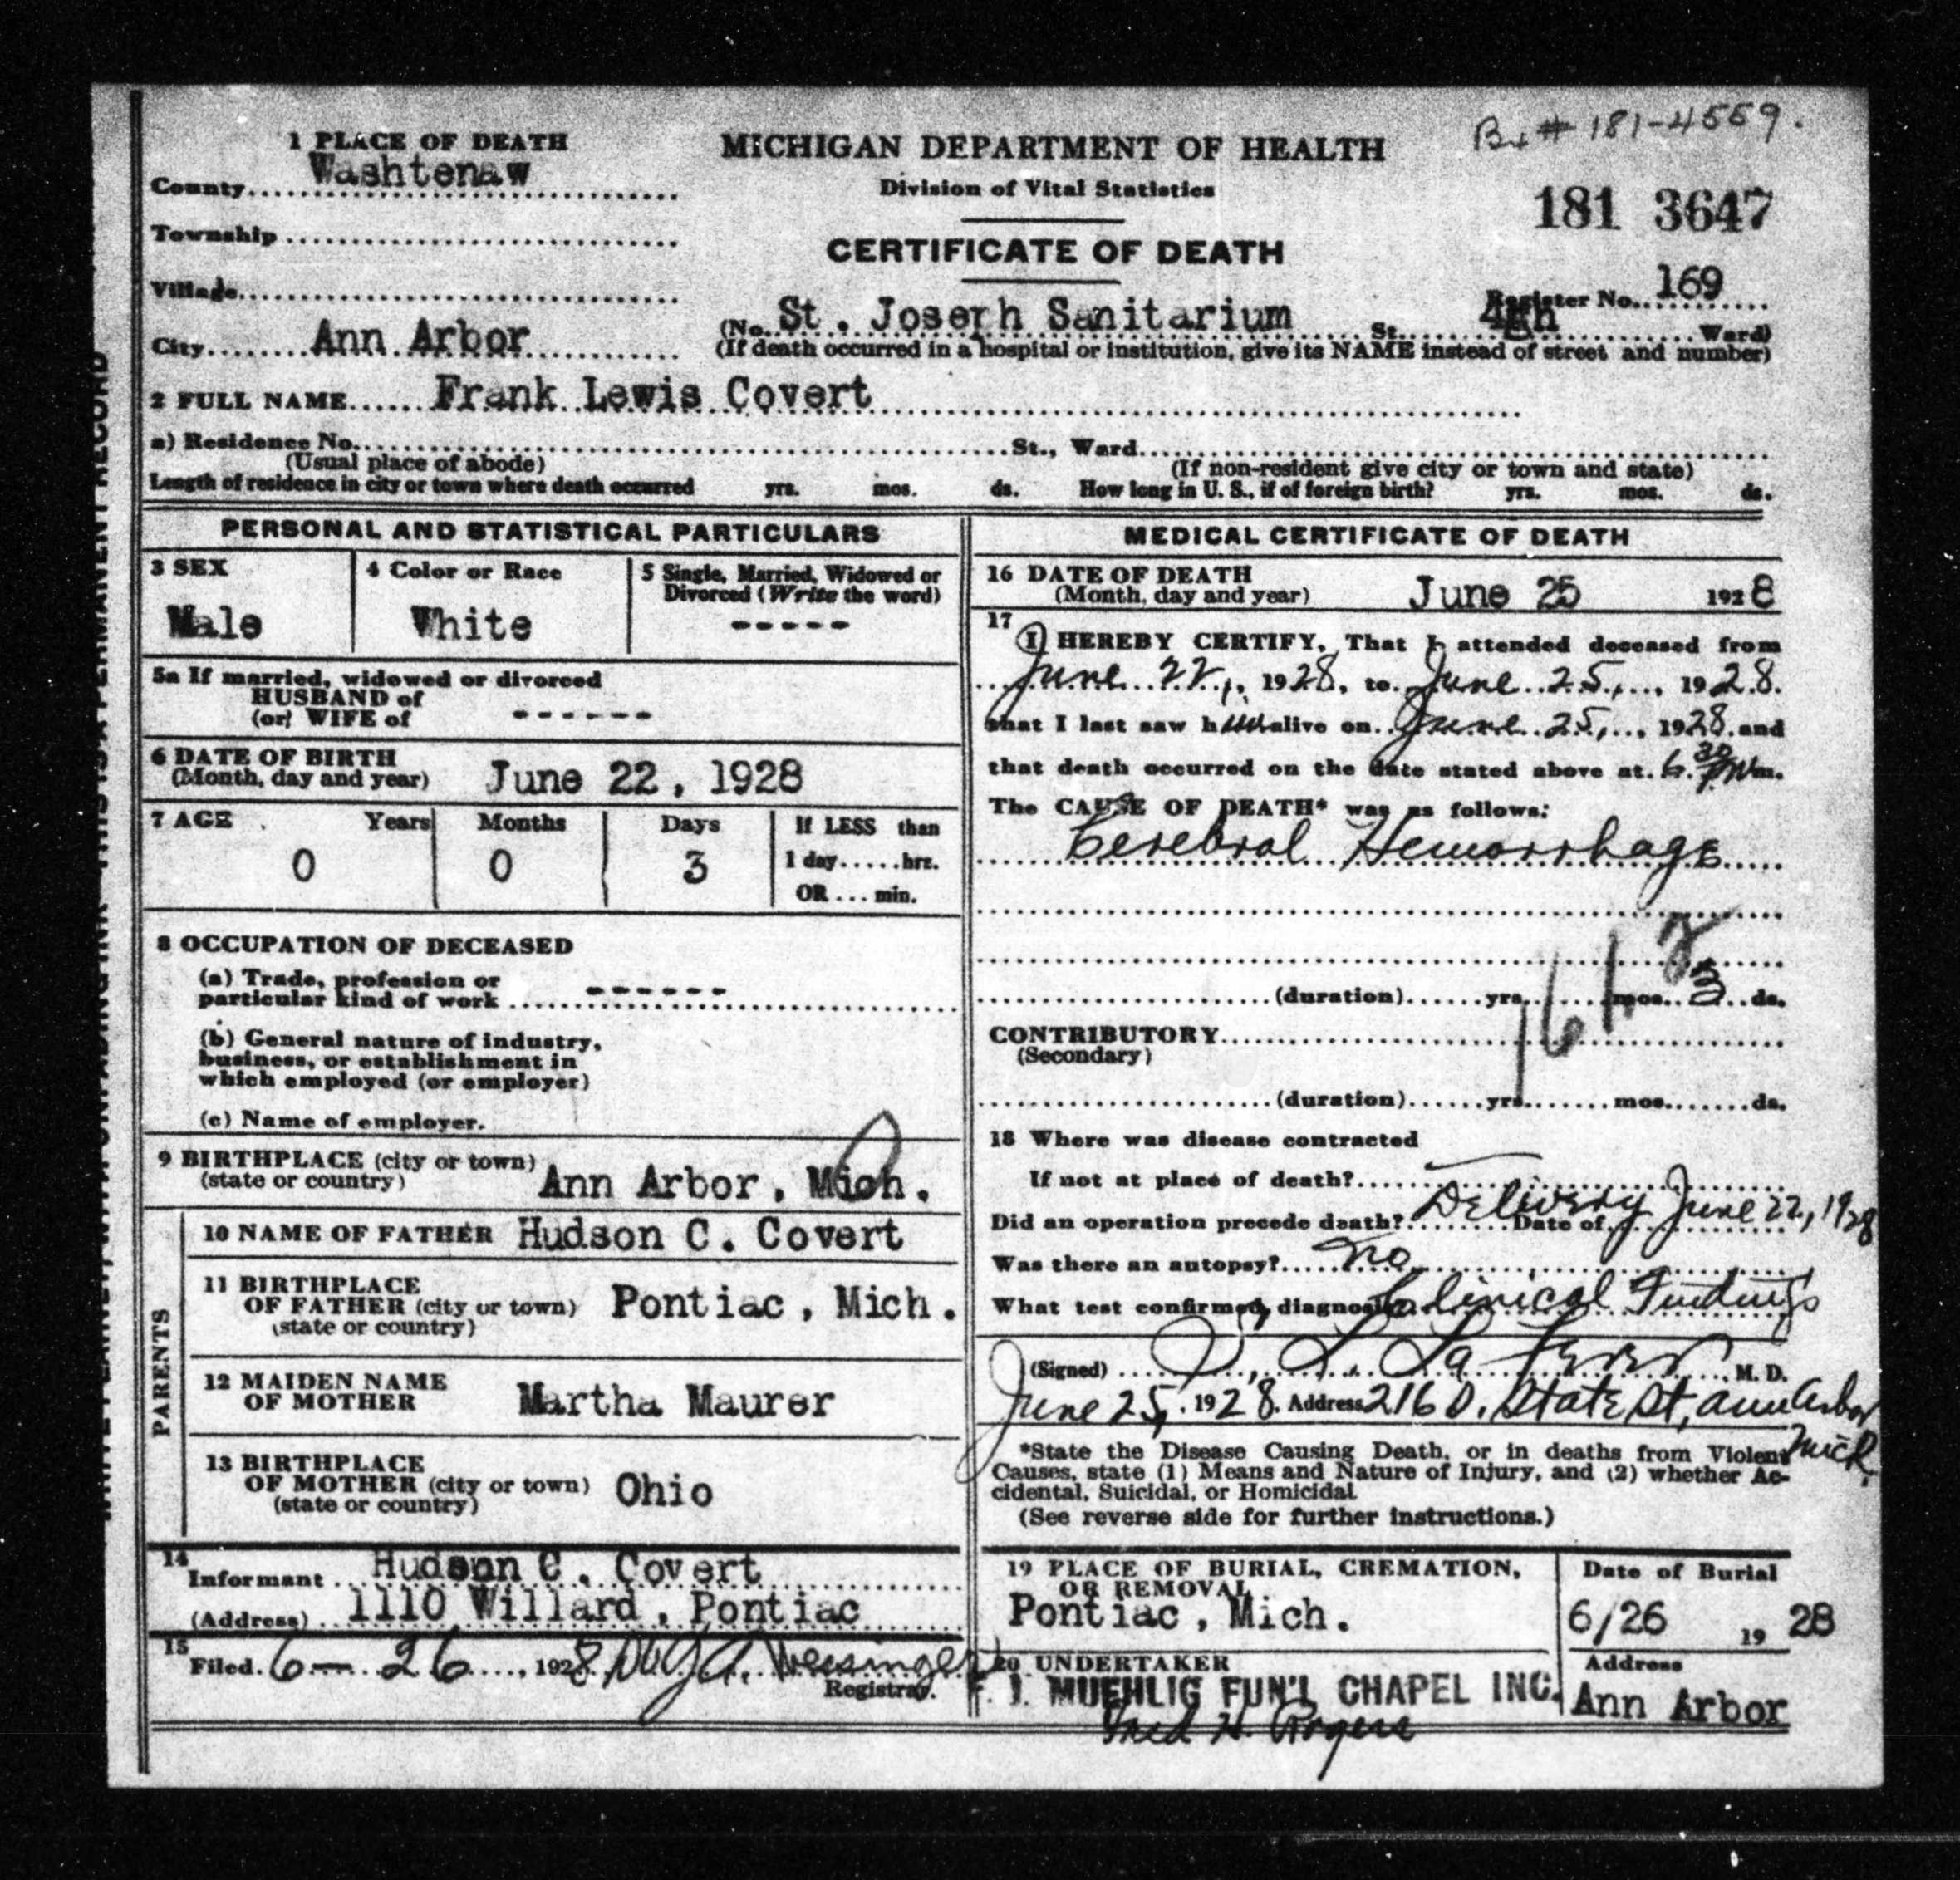 B. # 181-4559.
1 PLACE OF DEATH
County Washtenaw
Township
Village
City Ann Arbor
MICHIGAN DEPARTMENT OF HEALTH
Division of Vital Statistics
CERTIFICATE OF DEATH
181 3647
Register No. 169
(No. St. Joseph Sanitarium St. 4th Ward)
(If death occurred in a hospital or institution, give its NAME instead of street and number)
2 FULL NAME Frank Lewis Covert
a) Residence No. St., Ward
(Usual place of abode) (If non-resident give city or town and state)
Length of residence in city or town where death occurred yrs. mos. ds. How long in U. S., if of foreign birth? yrs. mos. ds.
PERSONAL AND STATISTICAL PARTICULARS
3 SEX
Male
4 Color or Race
White
5 Single, Married, Widowed or
Divorced (Write the word)
-----
5a If married, widowed or divorced
HUSBAND of
(or) WIFE of ------
6 DATE OF BIRTH
(Month, day and year) June 22, 1928
7 AGE Years Months Days If LESS than
0 0 3 1 day.....hrs.
OR ... min.
8 OCCUPATION OF DECEASED
(a) Trade, profession or
particular kind of work ------
(b) General nature of industry,
business, or establishment in
which employed (or employer)
(c) Name of employer.
9 BIRTHPLACE (city or town)
(state or country) Ann Arbor, Mich.
PARENTS
10 NAME OF FATHER Hudson C. Covert
11 BIRTHPLACE
OF FATHER (city or town) Pontiac, Mich.
(state or country)
12 MAIDEN NAME
OF MOTHER Martha Maurer
13 BIRTHPLACE
OF MOTHER (city or town) Ohio
(state or country)
14
Informant Hudson C. Covert
(Address) 1110 Willard, Pontiac
15
Filed. 6-26, 1928
Registrar.
MEDICAL CERTIFICATE OF DEATH
16 DATE OF DEATH
(Month, day and year) June 25 1928
17
I HEREBY CERTIFY, That I attended deceased from
June 22, 1928, to June 25, 1928.
that I last saw him alive on June 25, 1928. and
that death occurred on the date stated above at 6.30 Pm.
The CAUSE OF DEATH* was as follows:
Cerebral Hemorrhage
(duration) yrs. mos. 3 ds.
CONTRIBUTORY
(Secondary)
(duration) yrs. mos. ds.
18 Where was disease contracted
If not at place of death?
Did an operation precede death? Delivery Date of June 22, 1928
Was there an autopsy? no
What test confirmed diagnosis Clinical Findings
(Signed) M. D.
June 25, 1928. Address 216 State St, Ann Arbor
Mich.
*State the Disease Causing Death, or in deaths from Violent
Causes, state (1) Means and Nature of Injury, and (2) whether Ac-
cidental, Suicidal, or Homicidal
(See reverse side for further instructions.)
19 PLACE OF BURIAL, CREMATION,
OR REMOVAL
Pontiac, Mich.
Date of Burial
6/26 19 28
20 UNDERTAKER
J. MUEHLIG FUN'L CHAPEL INC.
Fred H. Rogers
Address
Ann Arbor